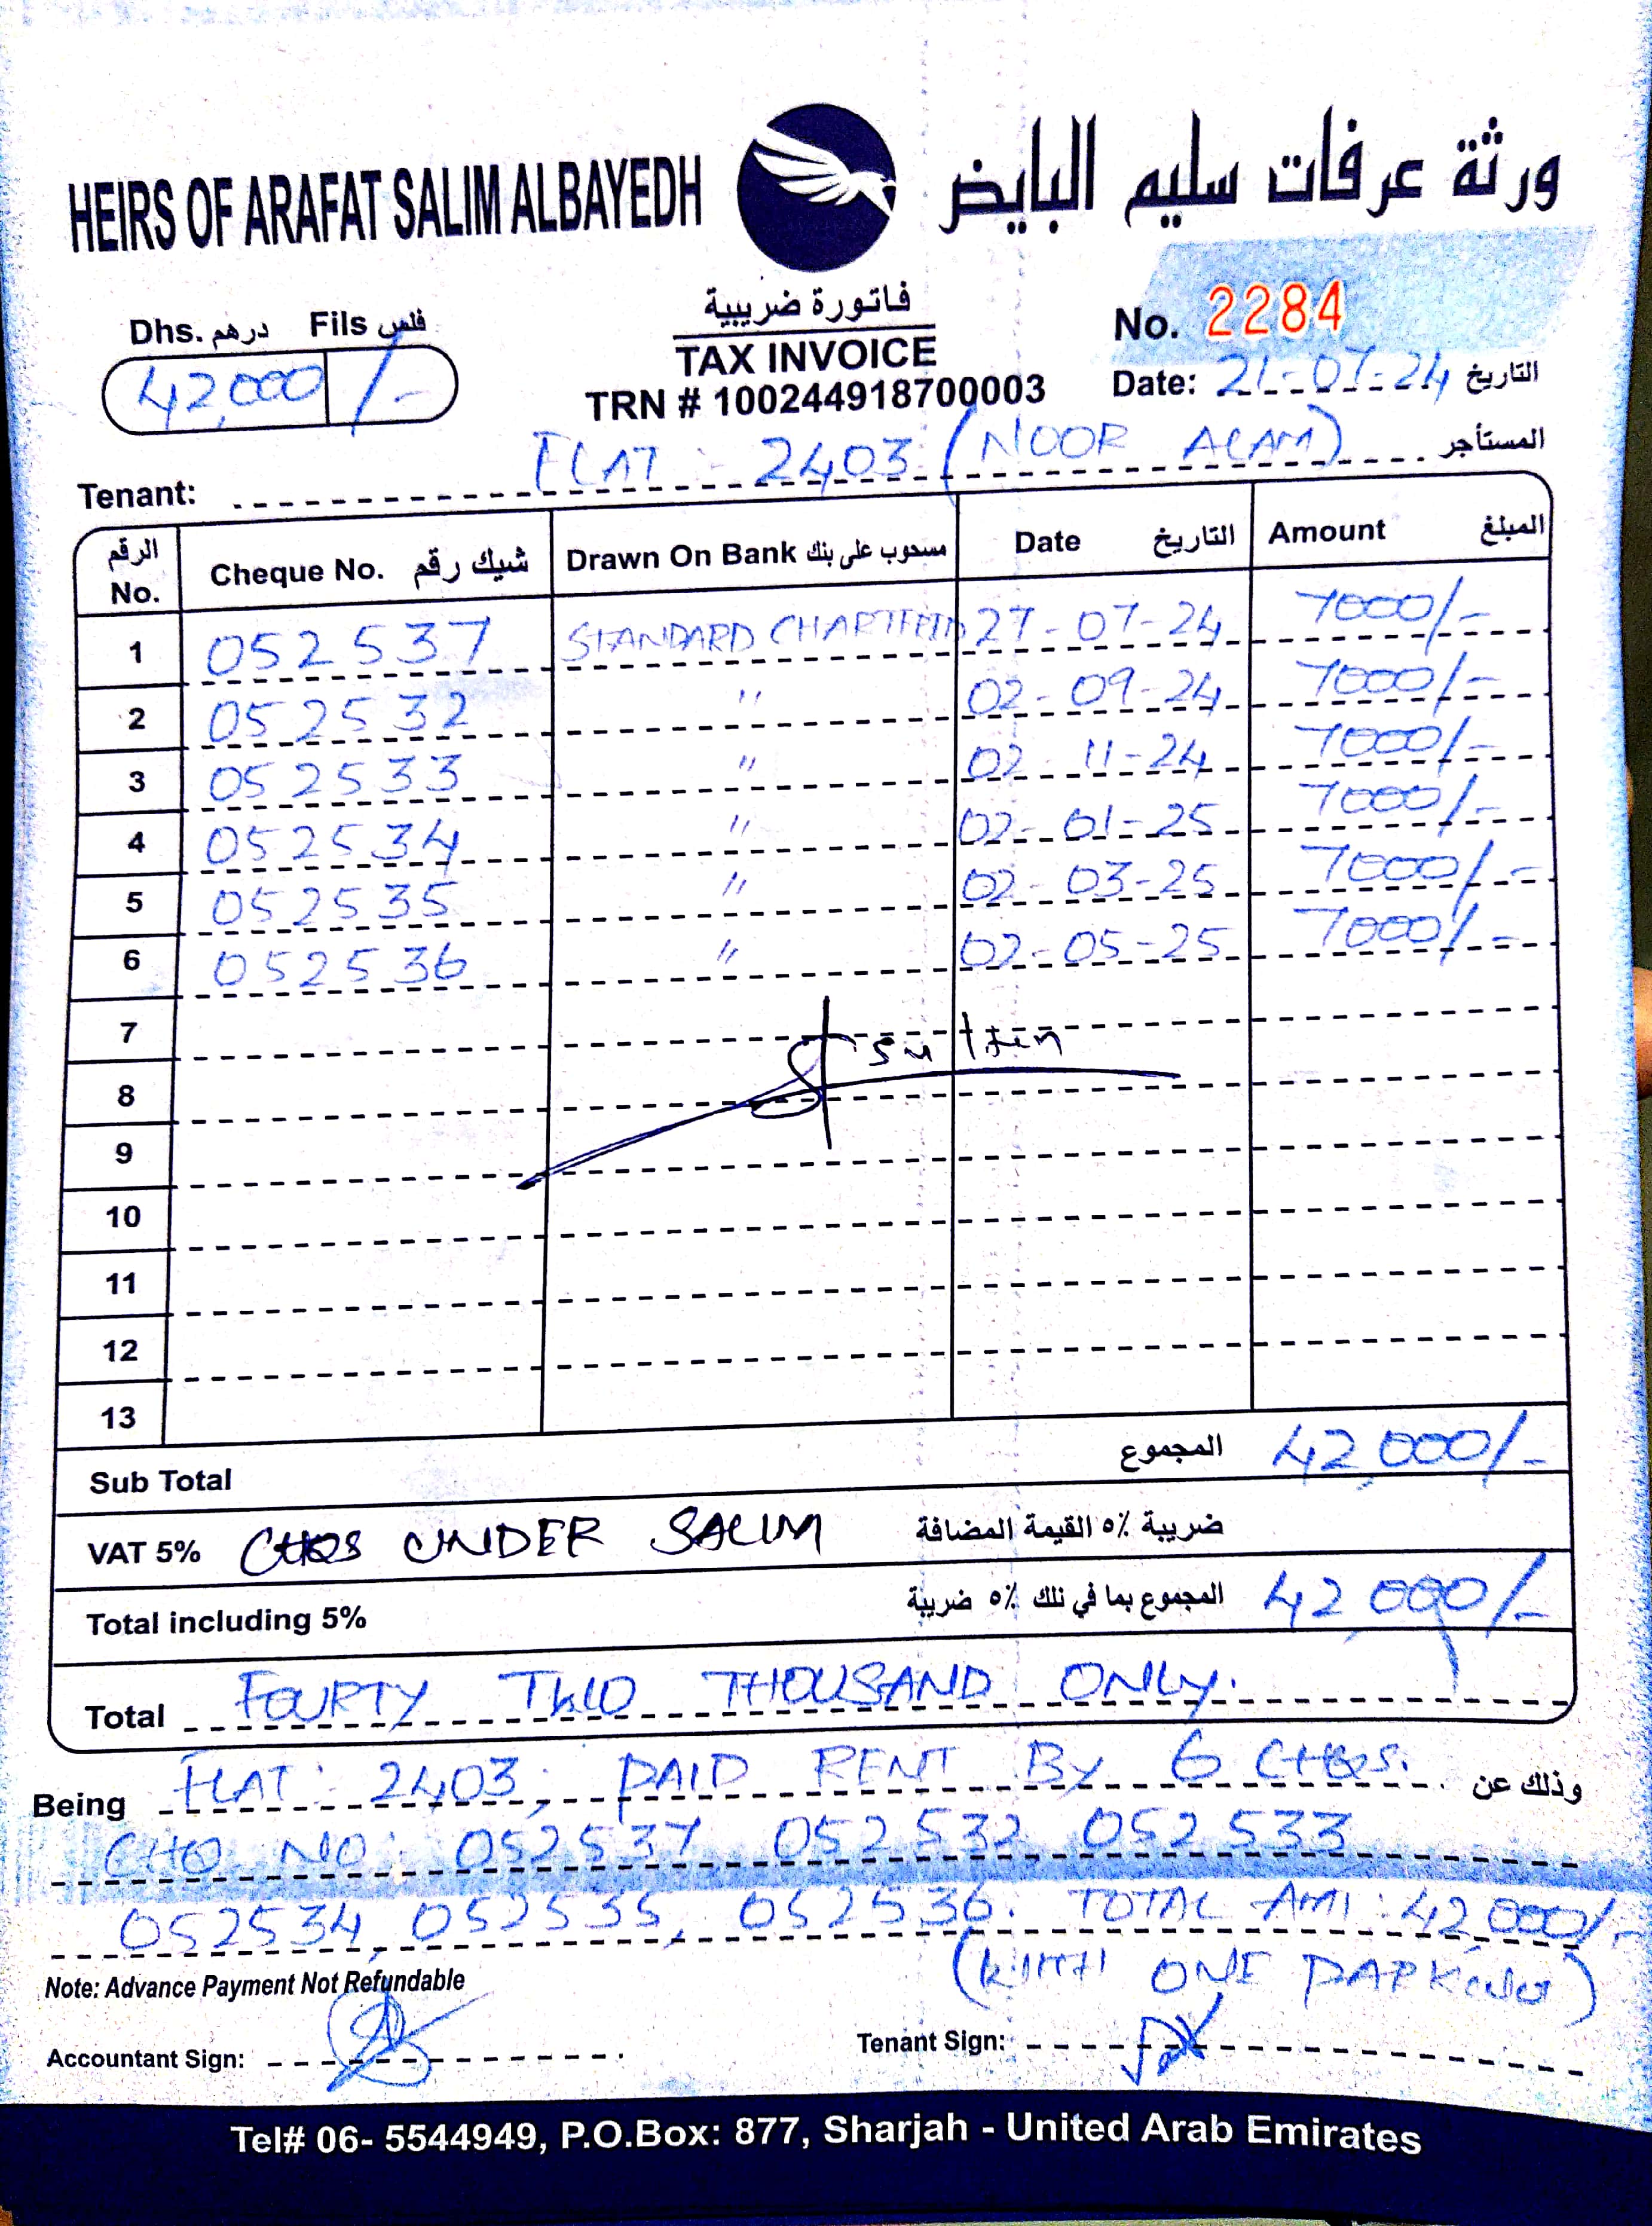 HEIRS OF ARAFAT SALIM ALBAYEDH ورثة عرفات سليم البايض
Dhs. درهم Fils فلس
42,000 /-
فاتورة ضريبية
TAX INVOICE
TRN # 100244918700003
No. 2284
Date: 21-07-24 التاريخ
Tenant: FLAT: 2403 (NOOR ALAM) المستأجر
الرقم No. Cheque No. شيك رقم Drawn On Bank مسحوب على بنك Date التاريخ Amount المبلغ
1 052537 STANDARD CHARTERED 27-07-24 7000/-
2 052532 " 02-09-24 7000/-
3 052533 " 02-11-24 7000/-
4 052534 " 02-01-25 7000/-
5 052535 " 02-03-25 7000/-
6 052536 " 02-05-25 7000/-
7
8
9
10
11
12
13
Sub Total المجموع 42,000/-
VAT 5% CHQS UNDER SALIM ضريبة ٥٪ القيمة المضافة
Total including 5% المجموع بما في ذلك ٥٪ ضريبة 42,000/-
Total FOURTY TWO THOUSAND ONLY.
Being FLAT: 2403, PAID RENT BY 6 CHQS. وذلك عن
CHQ NO: 052537 052532 052533
052534, 052535, 052536. TOTAL AMT: 42,000/-
Note: Advance Payment Not Refundable
ONE
Accountant Sign:
Tenant Sign:
Tel# 06- 5544949, P.O.Box: 877, Sharjah - United Arab Emirates